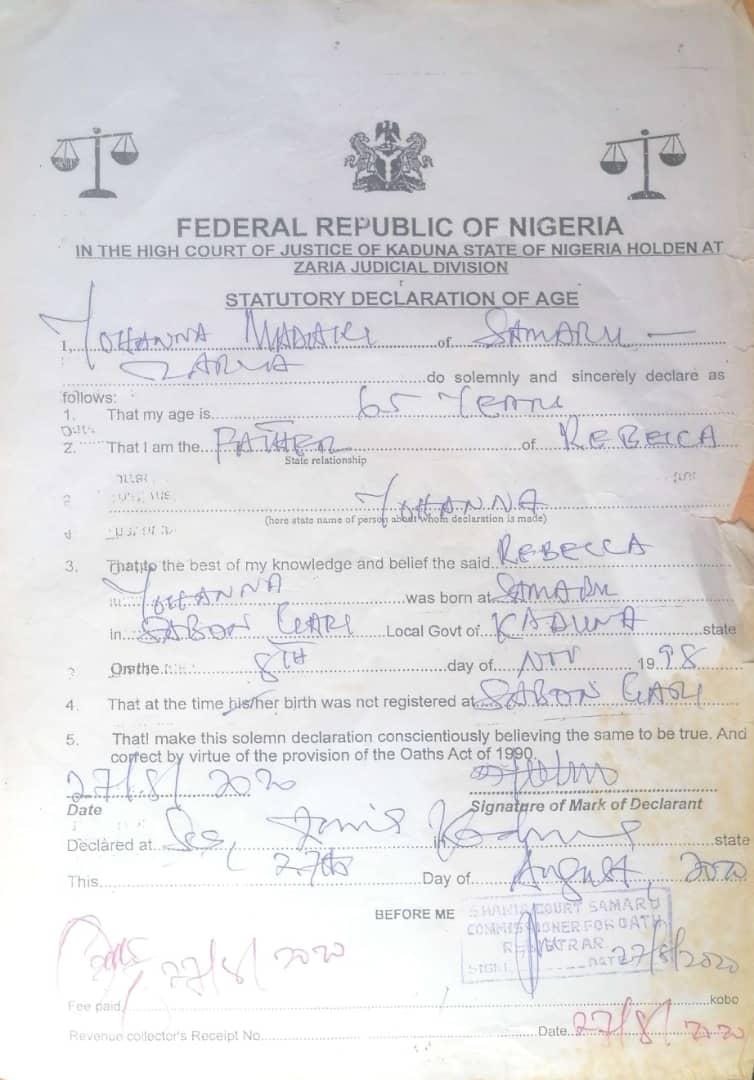 FEDERAL REPUBLIC OF NIGERIA
IN THE HIGH COURT OF JUSTICE OF KADUNA STATE OF NIGERIA HOLDEN AT
ZARIA JUDICIAL DIVISION
STATUTORY DECLARATION OF AGE
I, YOHANNA of SAMARU -
ZARIA do solemnly and sincerely declare as
follows:
1. That my age is 65 YEARS
2. That I am the FATHER of REBECCA
State relationship
YOHANNA
(here state name of person about whom declaration is made)
3. That to the best of my knowledge and belief the said REBECCA
YOHANNA was born at SAMARU
in SABON GARI Local Govt of KADUNA state
On the 8TH day of NOV 1998
4. That at the time his/her birth was not registered at SABON GARI
5. ThatI make this solemn declaration conscientiously believing the same to be true. And
correct by virtue of the provision of the Oaths Act of 1990.
27/8/2020
Date Signature of Mark of Declarant
Declared at in Kaduna state
This 27th Day of August, 2020
BEFORE ME
COURT SAMARU
COMMISSIONER FOR OATH
REGISTRAR
SIGN DATE 27/8/2020
27/8/2020
Fee paid kobo
Revenue collector's Receipt No. Date 27/8/2020